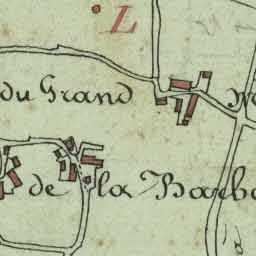 L
du Grand
de la Barb